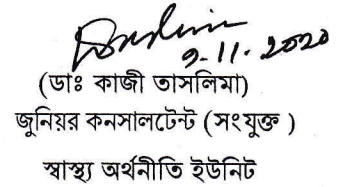 9-11-2020
(ডাঃ কাজী তাসলিমা)
জুনিয়র কনসালটেন্ট (সংযুক্ত )
স্বাস্থ্য অর্থনীতি ইউনিট